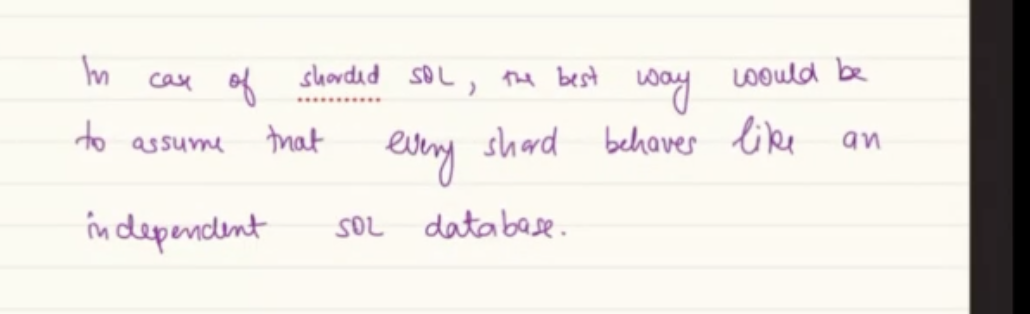 In case of sharded SQL, the best way would be
to assume that every shard behaves like an
independent SQL database.